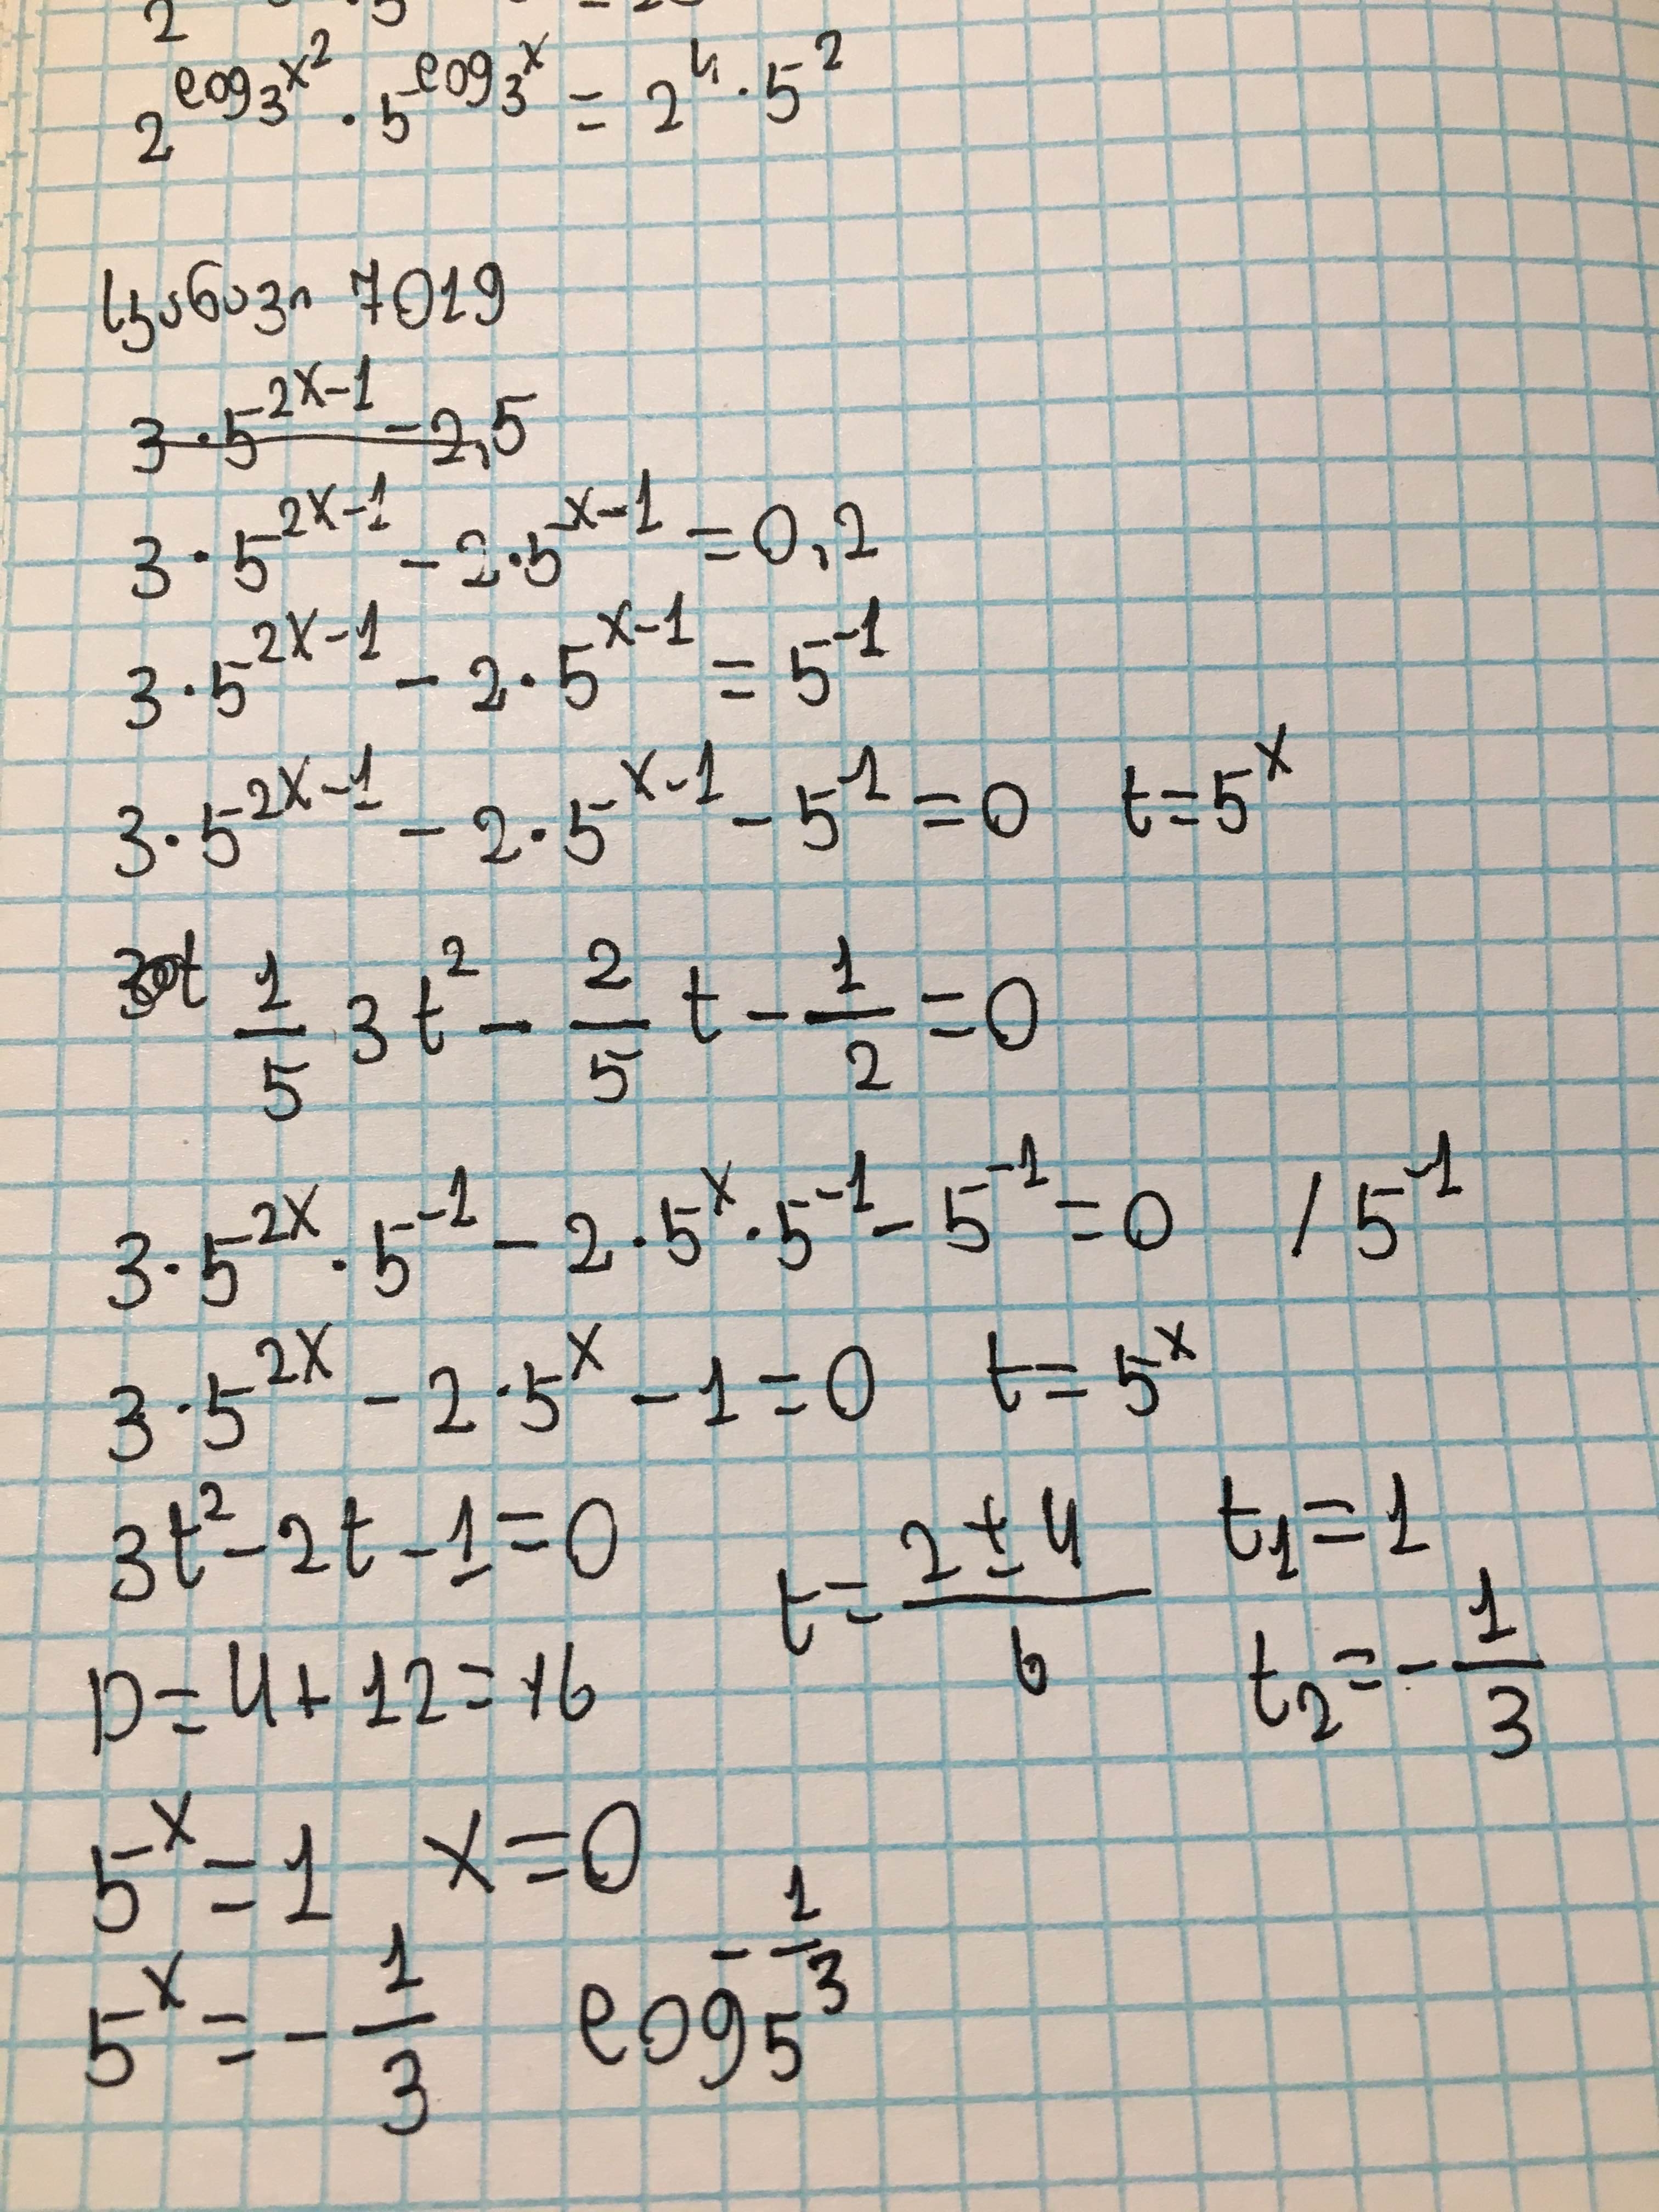 2^{log_3 x^2} · 5^{log_3 x} = 2^4 · 5^2
7019
3 · 5^{2x-1} - 2,5
3 · 5^{2x-1} - 2 · 5^{x-1} = 0,2
3 · 5^{2x-1} - 2 · 5^{x-1} = 5^{-1}
3 · 5^{2x-1} - 2 · 5^{x-1} - 5^{-1} = 0 t = 5^x
1/5 3t^2 - 2/5 t - 1/2 = 0
3 · 5^{2x} · 5^{-1} - 2 · 5^x · 5^{-1} - 5^{-1} = 0 / 5^{-1}
3 · 5^{2x} - 2 · 5^x - 1 = 0 t = 5^x
3t^2 - 2t - 1 = 0 t = (2 ± 4)/6 t_1 = 1
D = 4 + 12 = 16 t_2 = -1/3
5^x = 1 x = 0
5^x = -1/3 log_5 -1/3